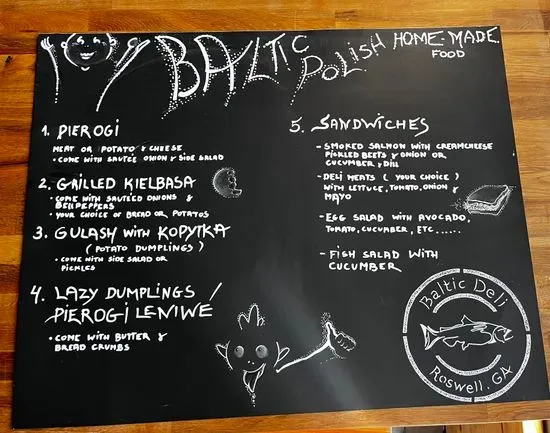 BALTIC POLISH HOME-MADE
FOOD
1. PIEROGI
MEAT OR POTATO & CHEESE
• COME WITH SAUTEE ONION & SIDE SALAD
2. GRILLED KIELBASA
• COME WITH SAUTEED ONIONS &
BELLPEPPERS
• YOUR CHOICE OF BREAD OR POTATOS
3. GULASH WITH KOPYTKA
( POTATO DUMPLINGS )
• COME WITH SIDE SALAD OR
PICKLES
4. LAZY DUMPLINGS /
PIEROGI LENIWE
• COME WITH BUTTER &
BREAD CRUMBS
5. SANDWICHES
- SMOKED SALMON WITH CREAMCHEESE
PICKLED BEETS & ONION OR
CUCUMBER & DILL
- DELI MEATS ( YOUR CHOICE )
WITH LETTUCE, TOMATO, ONION &
MAYO
- EGG SALAD WITH AVOCADO,
TOMATO, CUCUMBER, ETC......
- FISH SALAD WITH
CUCUMBER
Baltic Deli
Roswell, GA